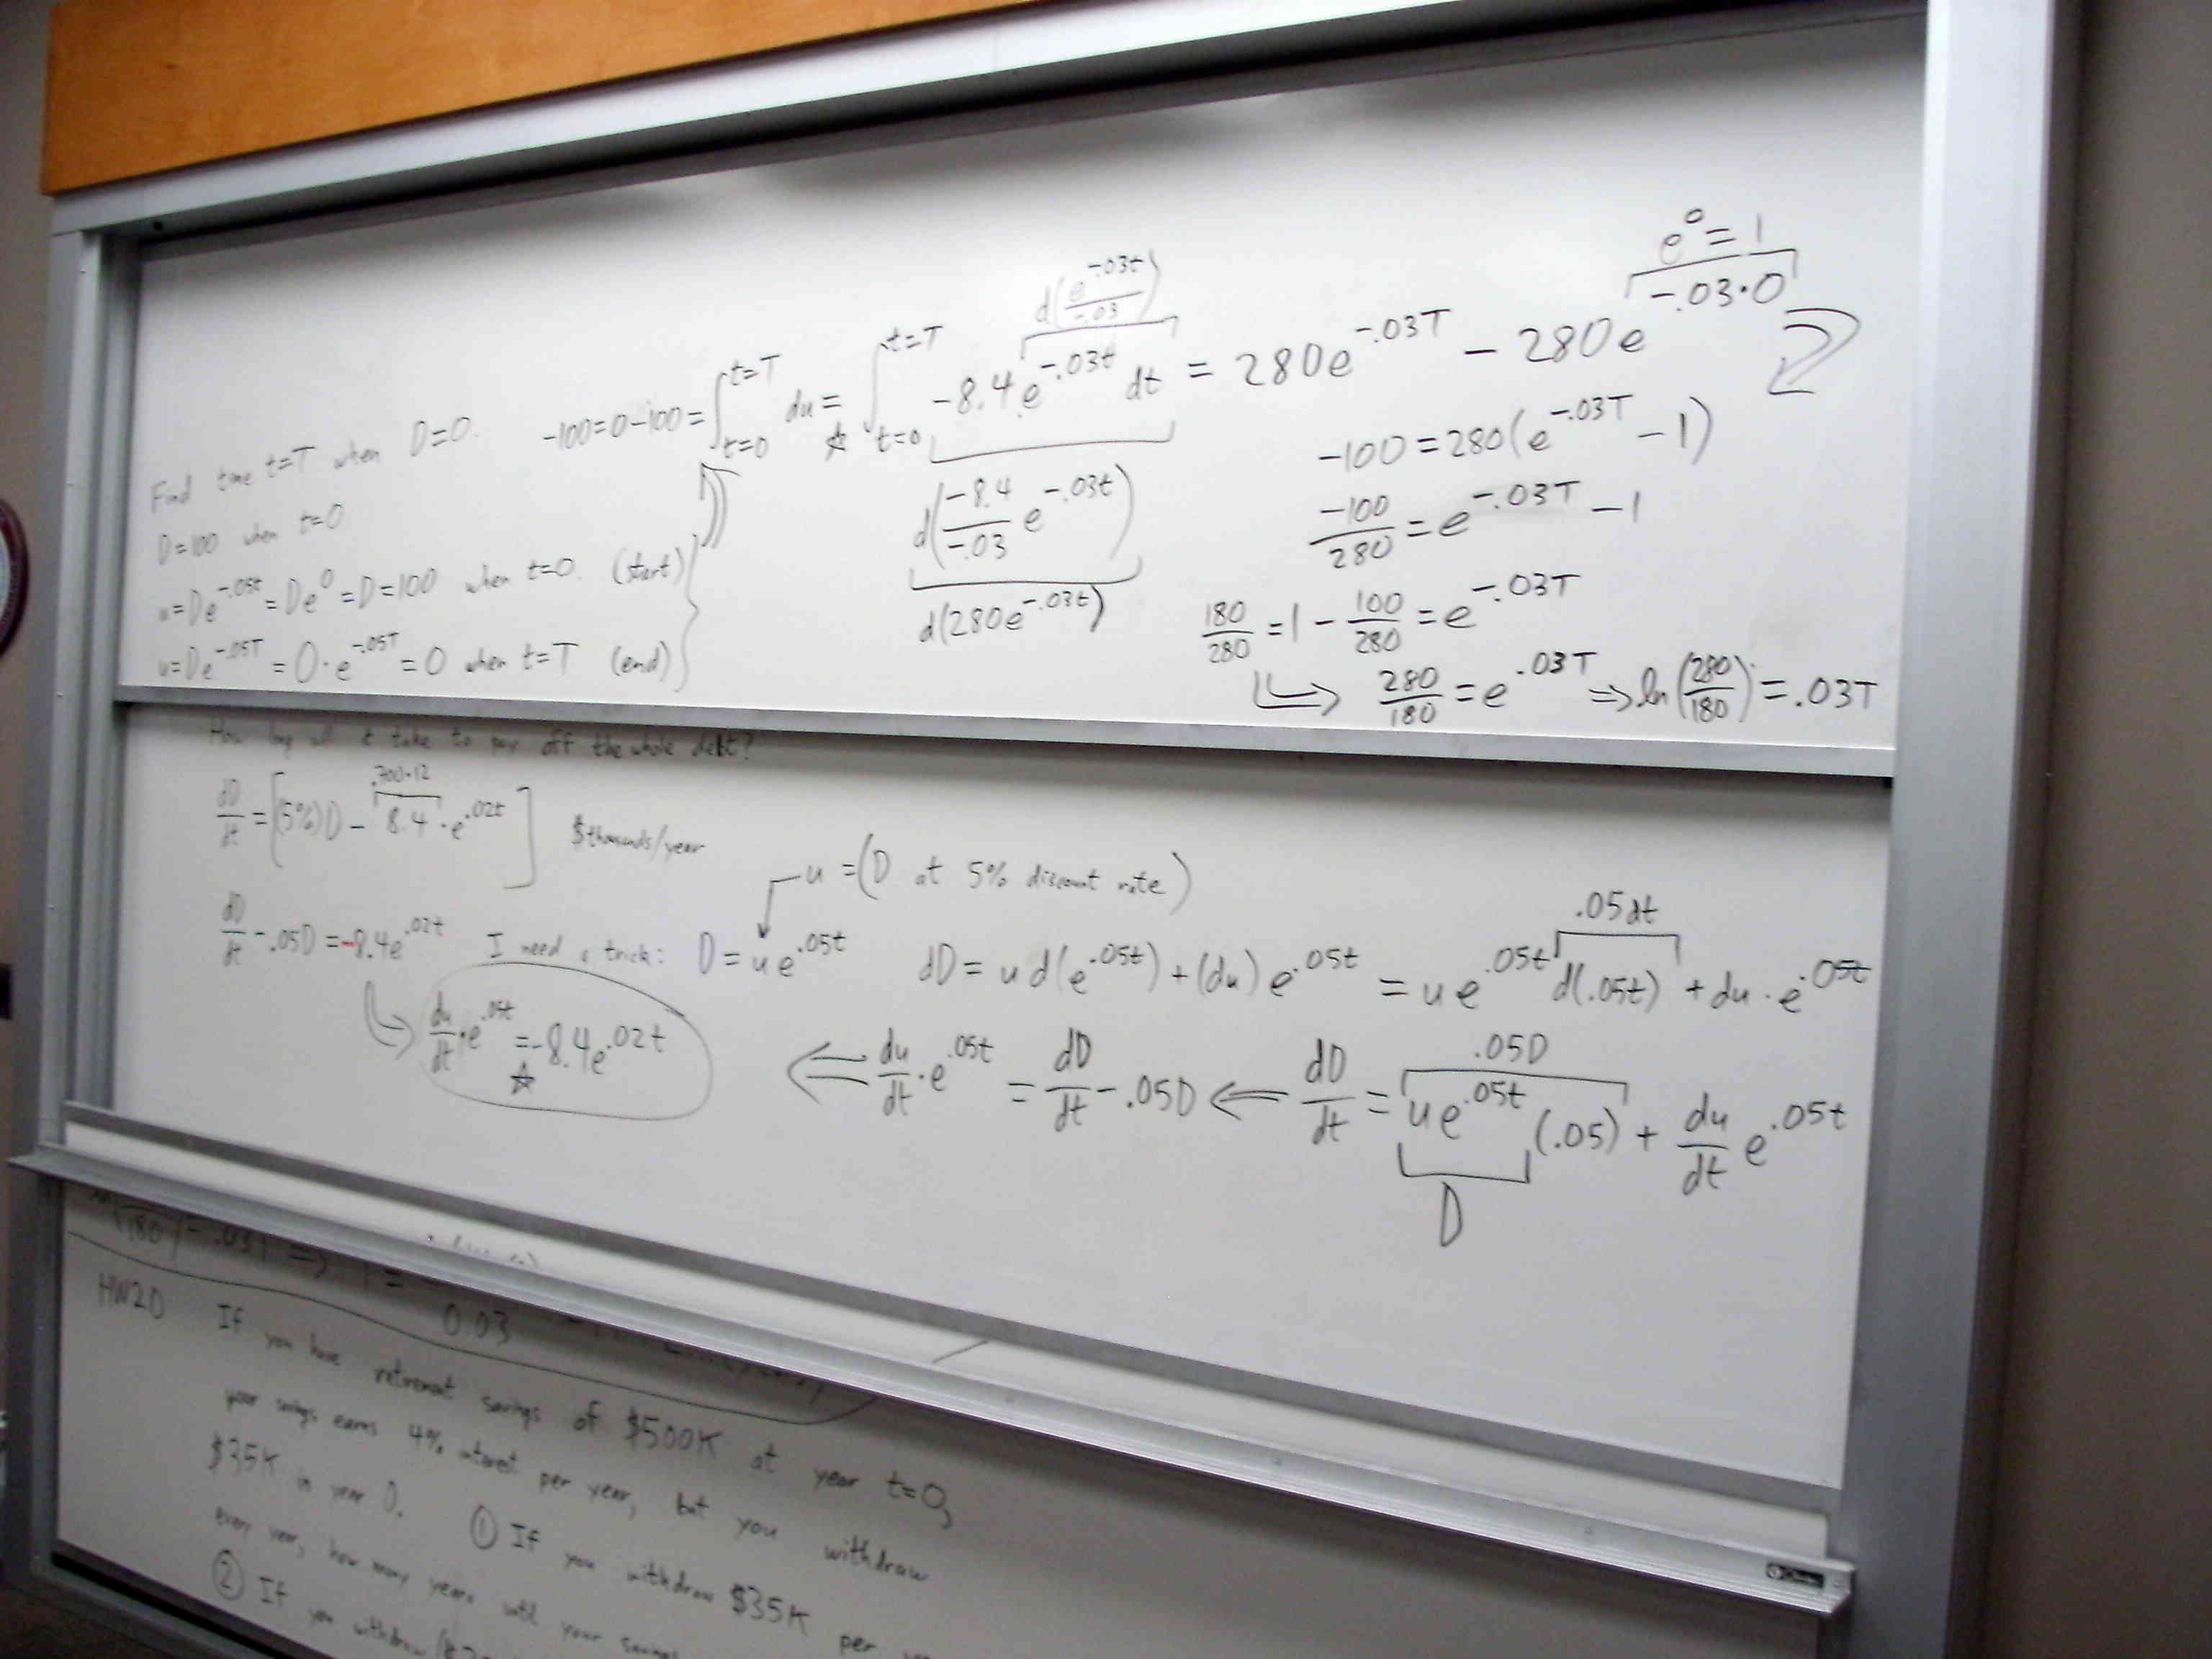 e^0 = 1
d(e^-.03t / -.03)
-.03·0
Find time t=T when D=0. -100=0-100= ∫_{t=0}^{t=T} du = ☆ ∫_{t=0}^{t=T} -8.4e^-.03t dt = 280e^-.03T - 280e
D=100 when t=0
d(-8.4/-.03 e^-.03t)
-100 = 280(e^-.03T - 1)
u=De^-.05t = De^0 = D=100 when t=0. (start)
d(280e^-.03t)
-100/280 = e^-.03T - 1
u=De^-.05T = 0·e^-.05T = 0 when t=T (end)
180/280 = 1 - 100/280 = e^-.03T
280/180 = e^.03T ⇒ ln(280/180) = .03T
How long will it take to pay off the whole debt?
.700·12
dD/dt = [(5%)D - 8.4·e^.02t] $thousands/year
u = (D at 5% discount rate)
.05dt
dD/dt - .05D = -8.4e^.02t I need a trick: D = ue^.05t dD = u d(e^.05t) + (du) e^.05t = ue^.05t d(.05t) + du·e^.05t
du/dt·e^.05t = -8.4e^.02t
☆
.05D
⇐ du/dt·e^.05t = dD/dt - .05D ⇐ dD/dt = ue^.05t (.05) + du/dt e^.05t
D
180) = .03T ⇒ T =
0.03
HW20 If you have retirement savings of $500K at year t=0,
your savings earns 4% interest per year, but you withdraw
$35K in year 0. ① If you withdraw $35K per
every year, how many years until your savings
② If you withdraw